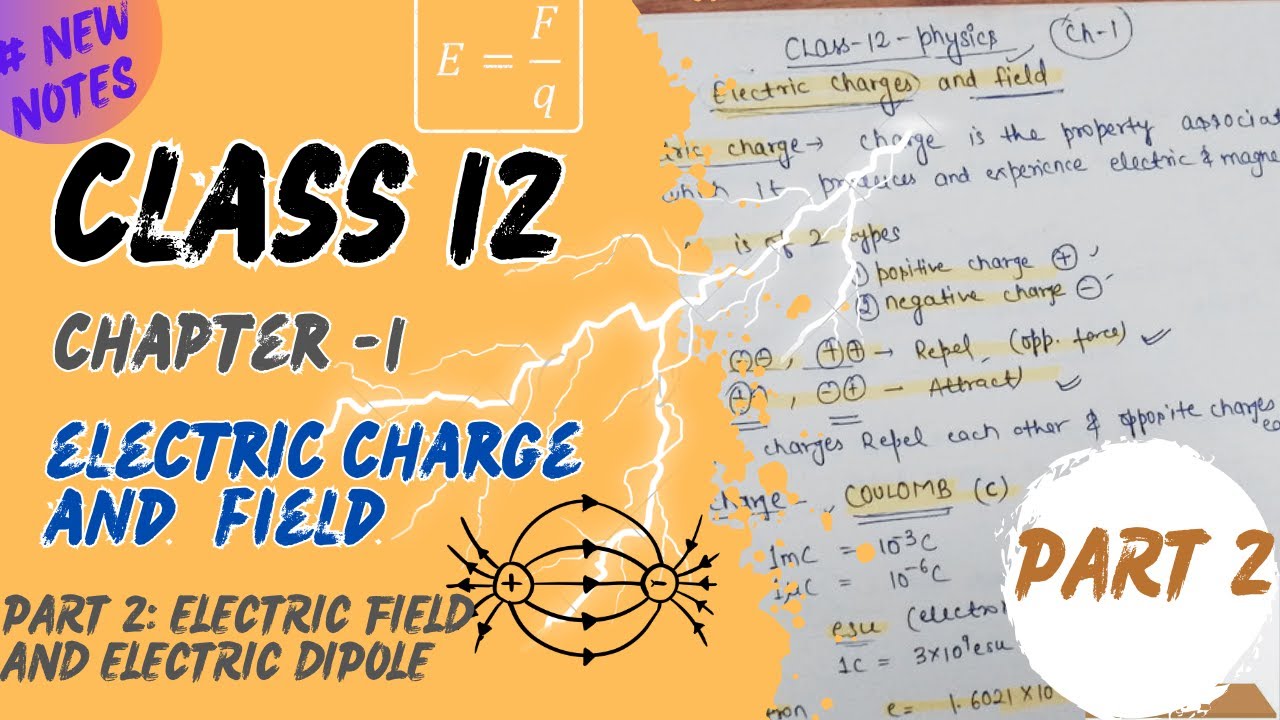 # NEW
NOTES
E = F/q
CLASS 12
CHAPTER -1
ELECTRIC CHARGE
AND FIELD
PART 2: ELECTRIC FIELD
AND ELECTRIC DIPOLE
+ -
CLASS-12-physics Ch-1
Electric charges and field
charge → charge is the property
which it produces and experience electric &
is of 2 types
① positive charge ⊕
② negative charge ⊖
⊖⊖, ⊕⊕ → Repel (opp. force)
⊖⊕ - Attract
charges Repel each other & opposite charges
COULOMB (C)
1mC = 10⁻³C
1μC = 10⁻⁶C
esu
1C = 3×10⁹esu
e= 1.6021 × 10
PART 2